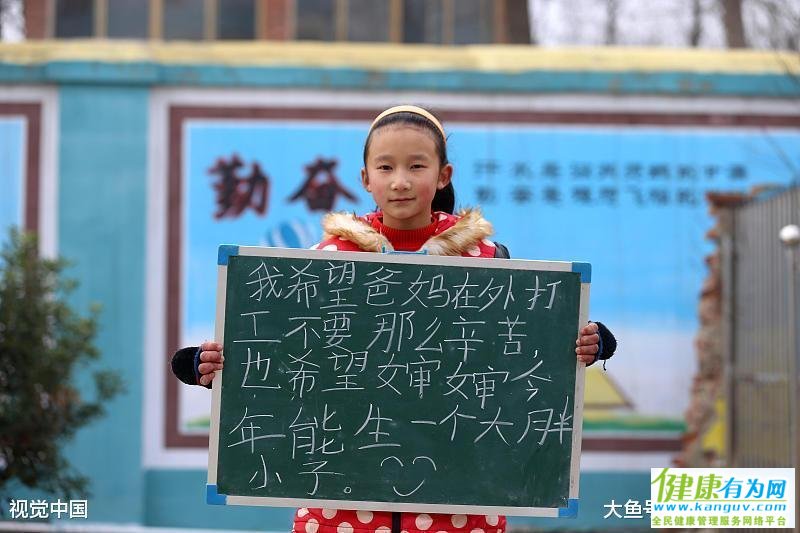 勤奋
我希望爸妈在外打
工不要那么辛苦,
也希望婶婶今
年能生一个大胖
小子。
视觉中国
大鱼号
健康有为网
www.kanguv.com
全民健康管理服务网络平台